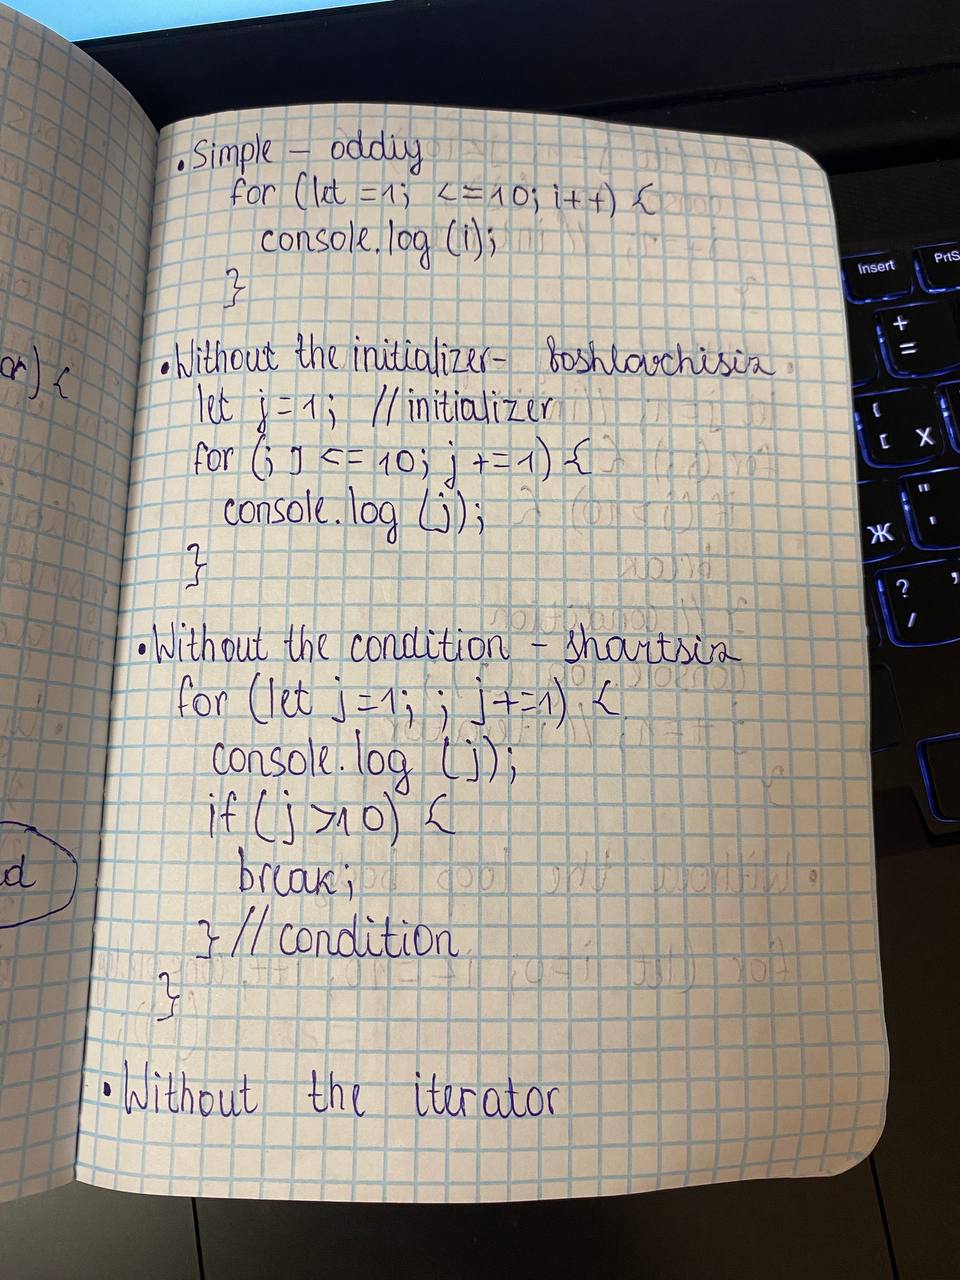 or) {
d
• Simple – oddiy
for (let =1; <=10; i++) {
console.log (i);
}
• Without the initializer – boshlovchisiz
let j=1; //initializer
for (; j <= 10; j +=1) {
console.log (j);
}
• Without the condition – shartsiz
for (let j=1; ; j+=1) {
console.log (j);
if (j >10) {
break;
} // condition
}
• Without the iterator
Insert
PrtS
+
=
{
[ х
"
'
Ж
?
/